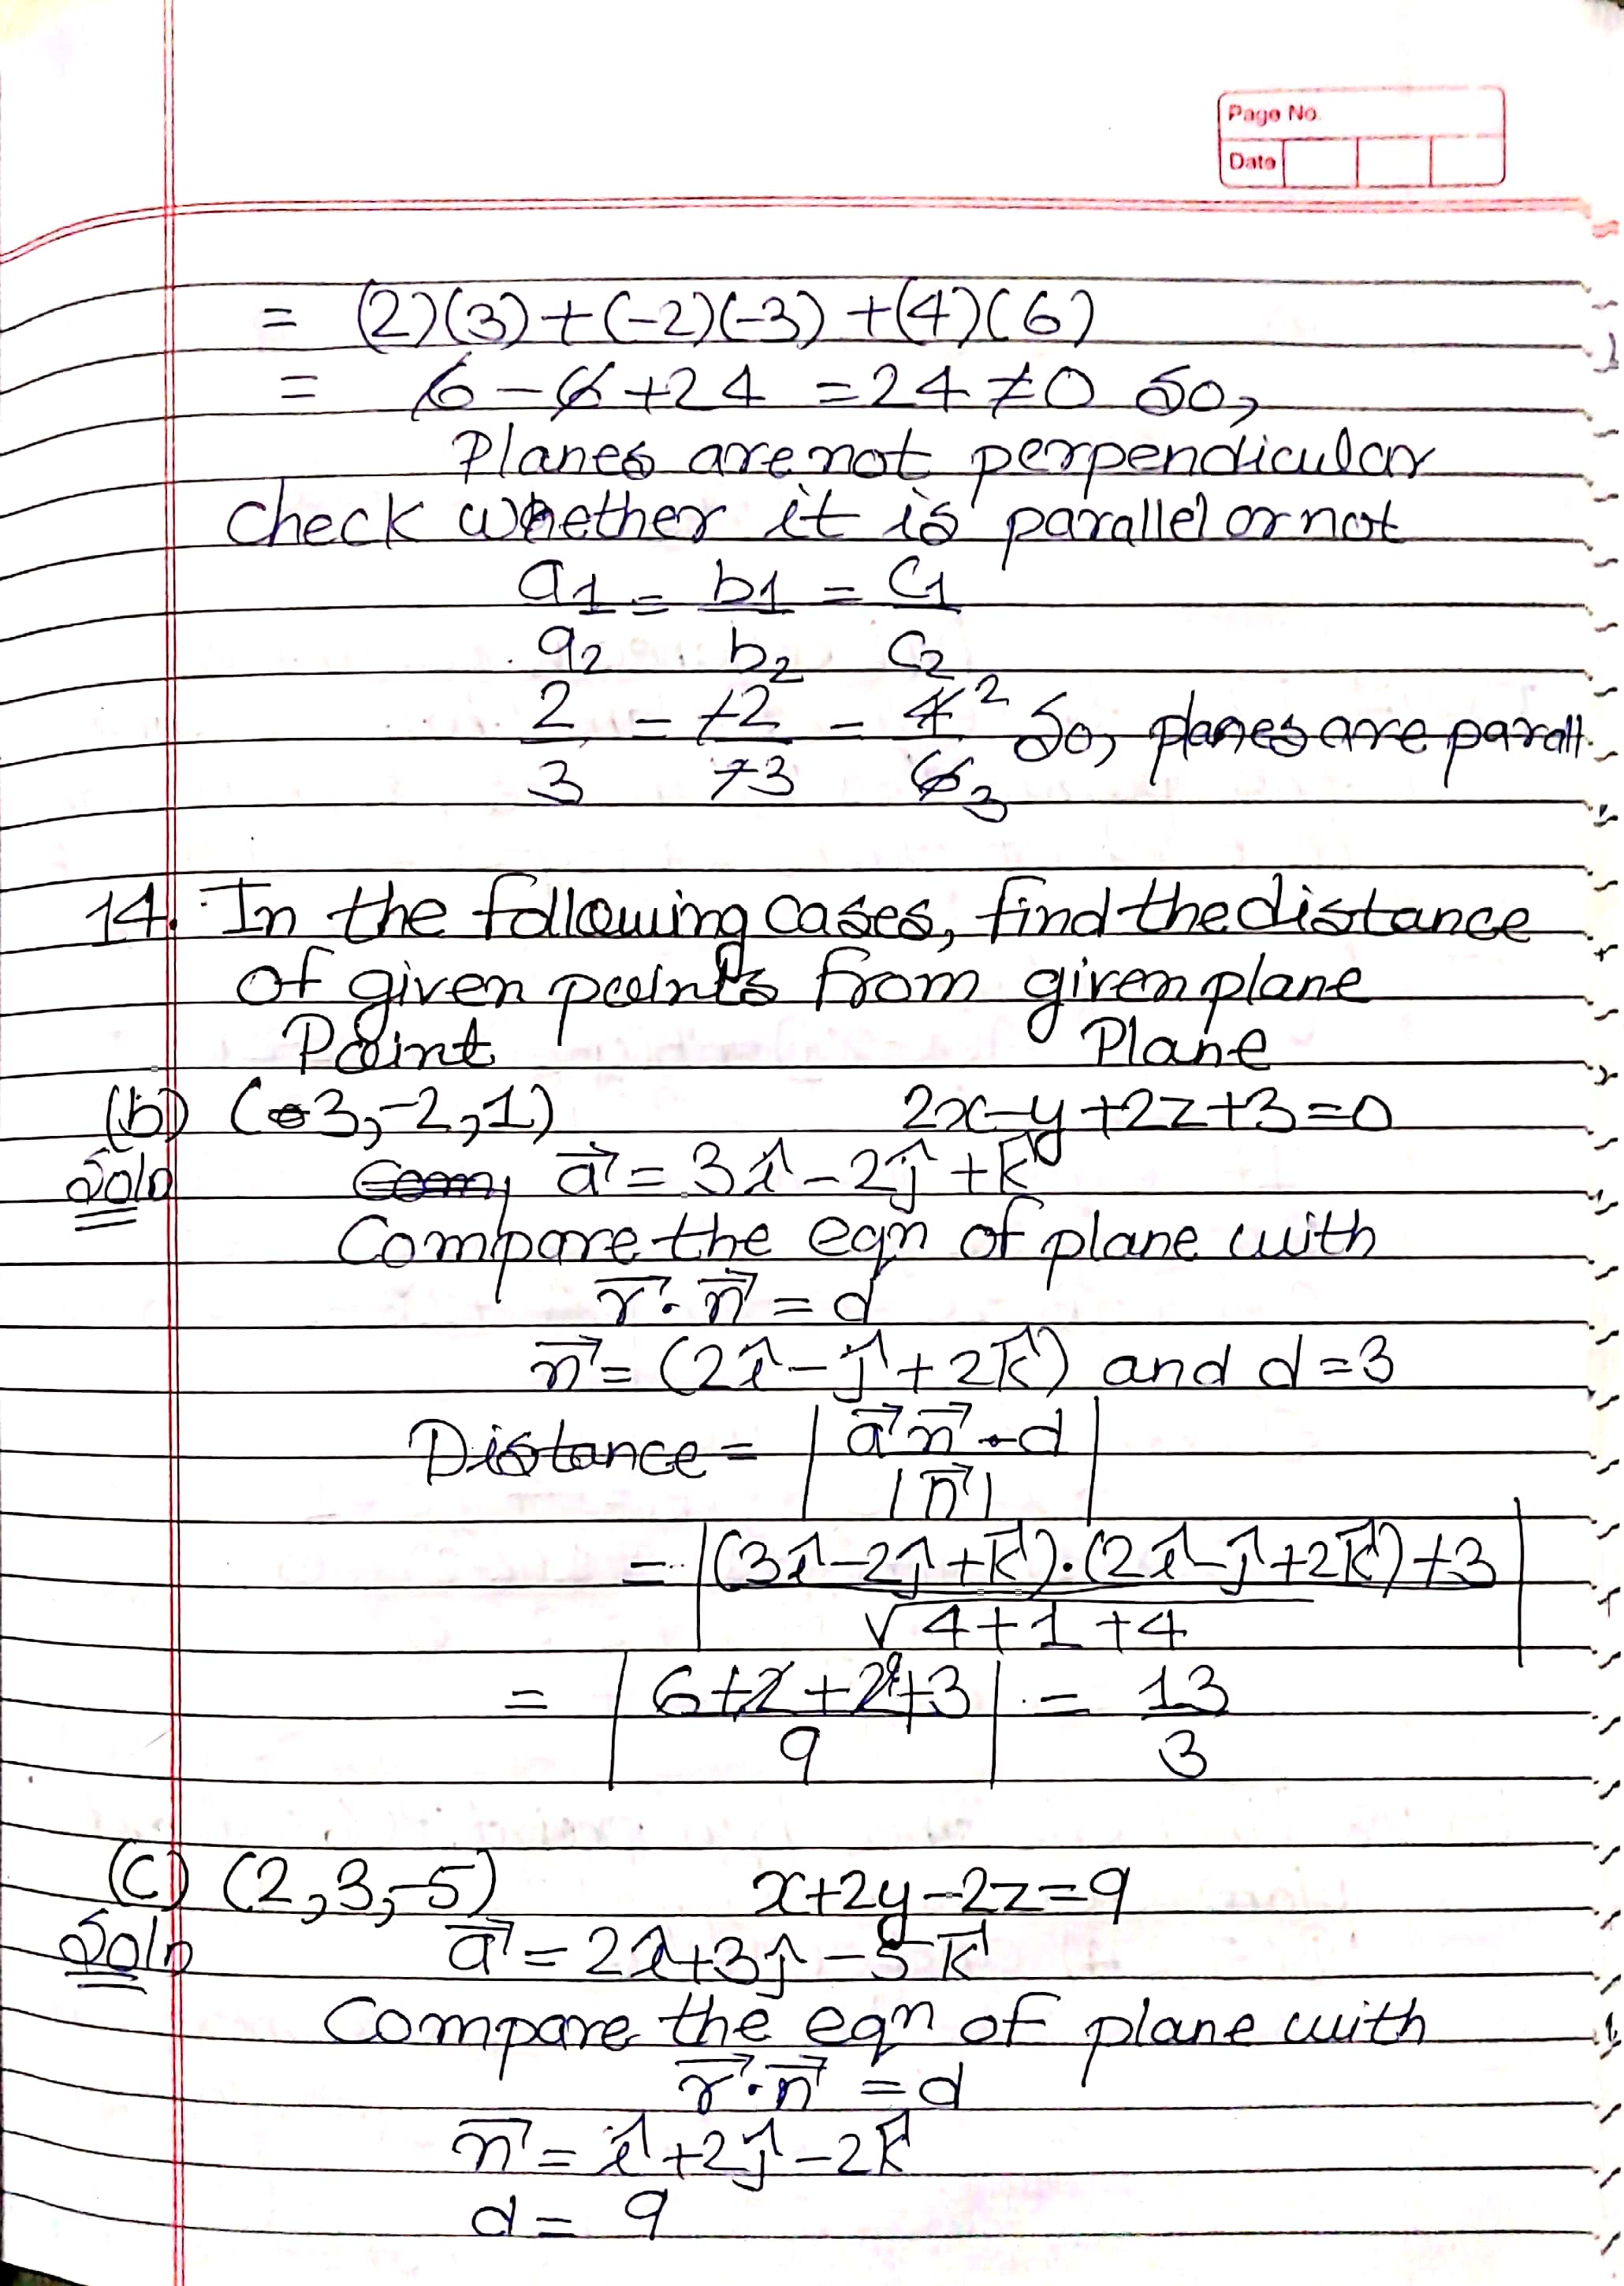 Page No.
Date
= (2)(3)+(-2)(-3)+(4)(6)
= 6-6+24 =24≠0 So,
Planes are not perpendicular
check whether it is parallel or not
a1/a2 = b1/b2 = c1/c2
2/3 = -2/-3 = 4 2/6 3 So, planes are parall
14. In the following cases, find the distance
of given points from given plane
Point Plane
(b) (3,-2,1) 2x-y+2z+3=0
Soln a⃗ = 3î-2ĵ+k⃗
Compare the eqn of plane with
r⃗.n⃗ = d
n⃗ = (2î-ĵ+2k⃗) and d=3
Distance = |a⃗n⃗-d/|n⃗||
= |(3î-2ĵ+k⃗).(2î-ĵ+2k⃗)+3/√4+1+4|
= |6+2+2+3/9| = 13/3
(c) (2,3,-5) x+2y-2z=9
Soln a⃗ = 2î+3ĵ-5k⃗
Compare the eqn of plane with
r⃗.n⃗ = d
n⃗ = î+2ĵ-2k⃗
d = 9